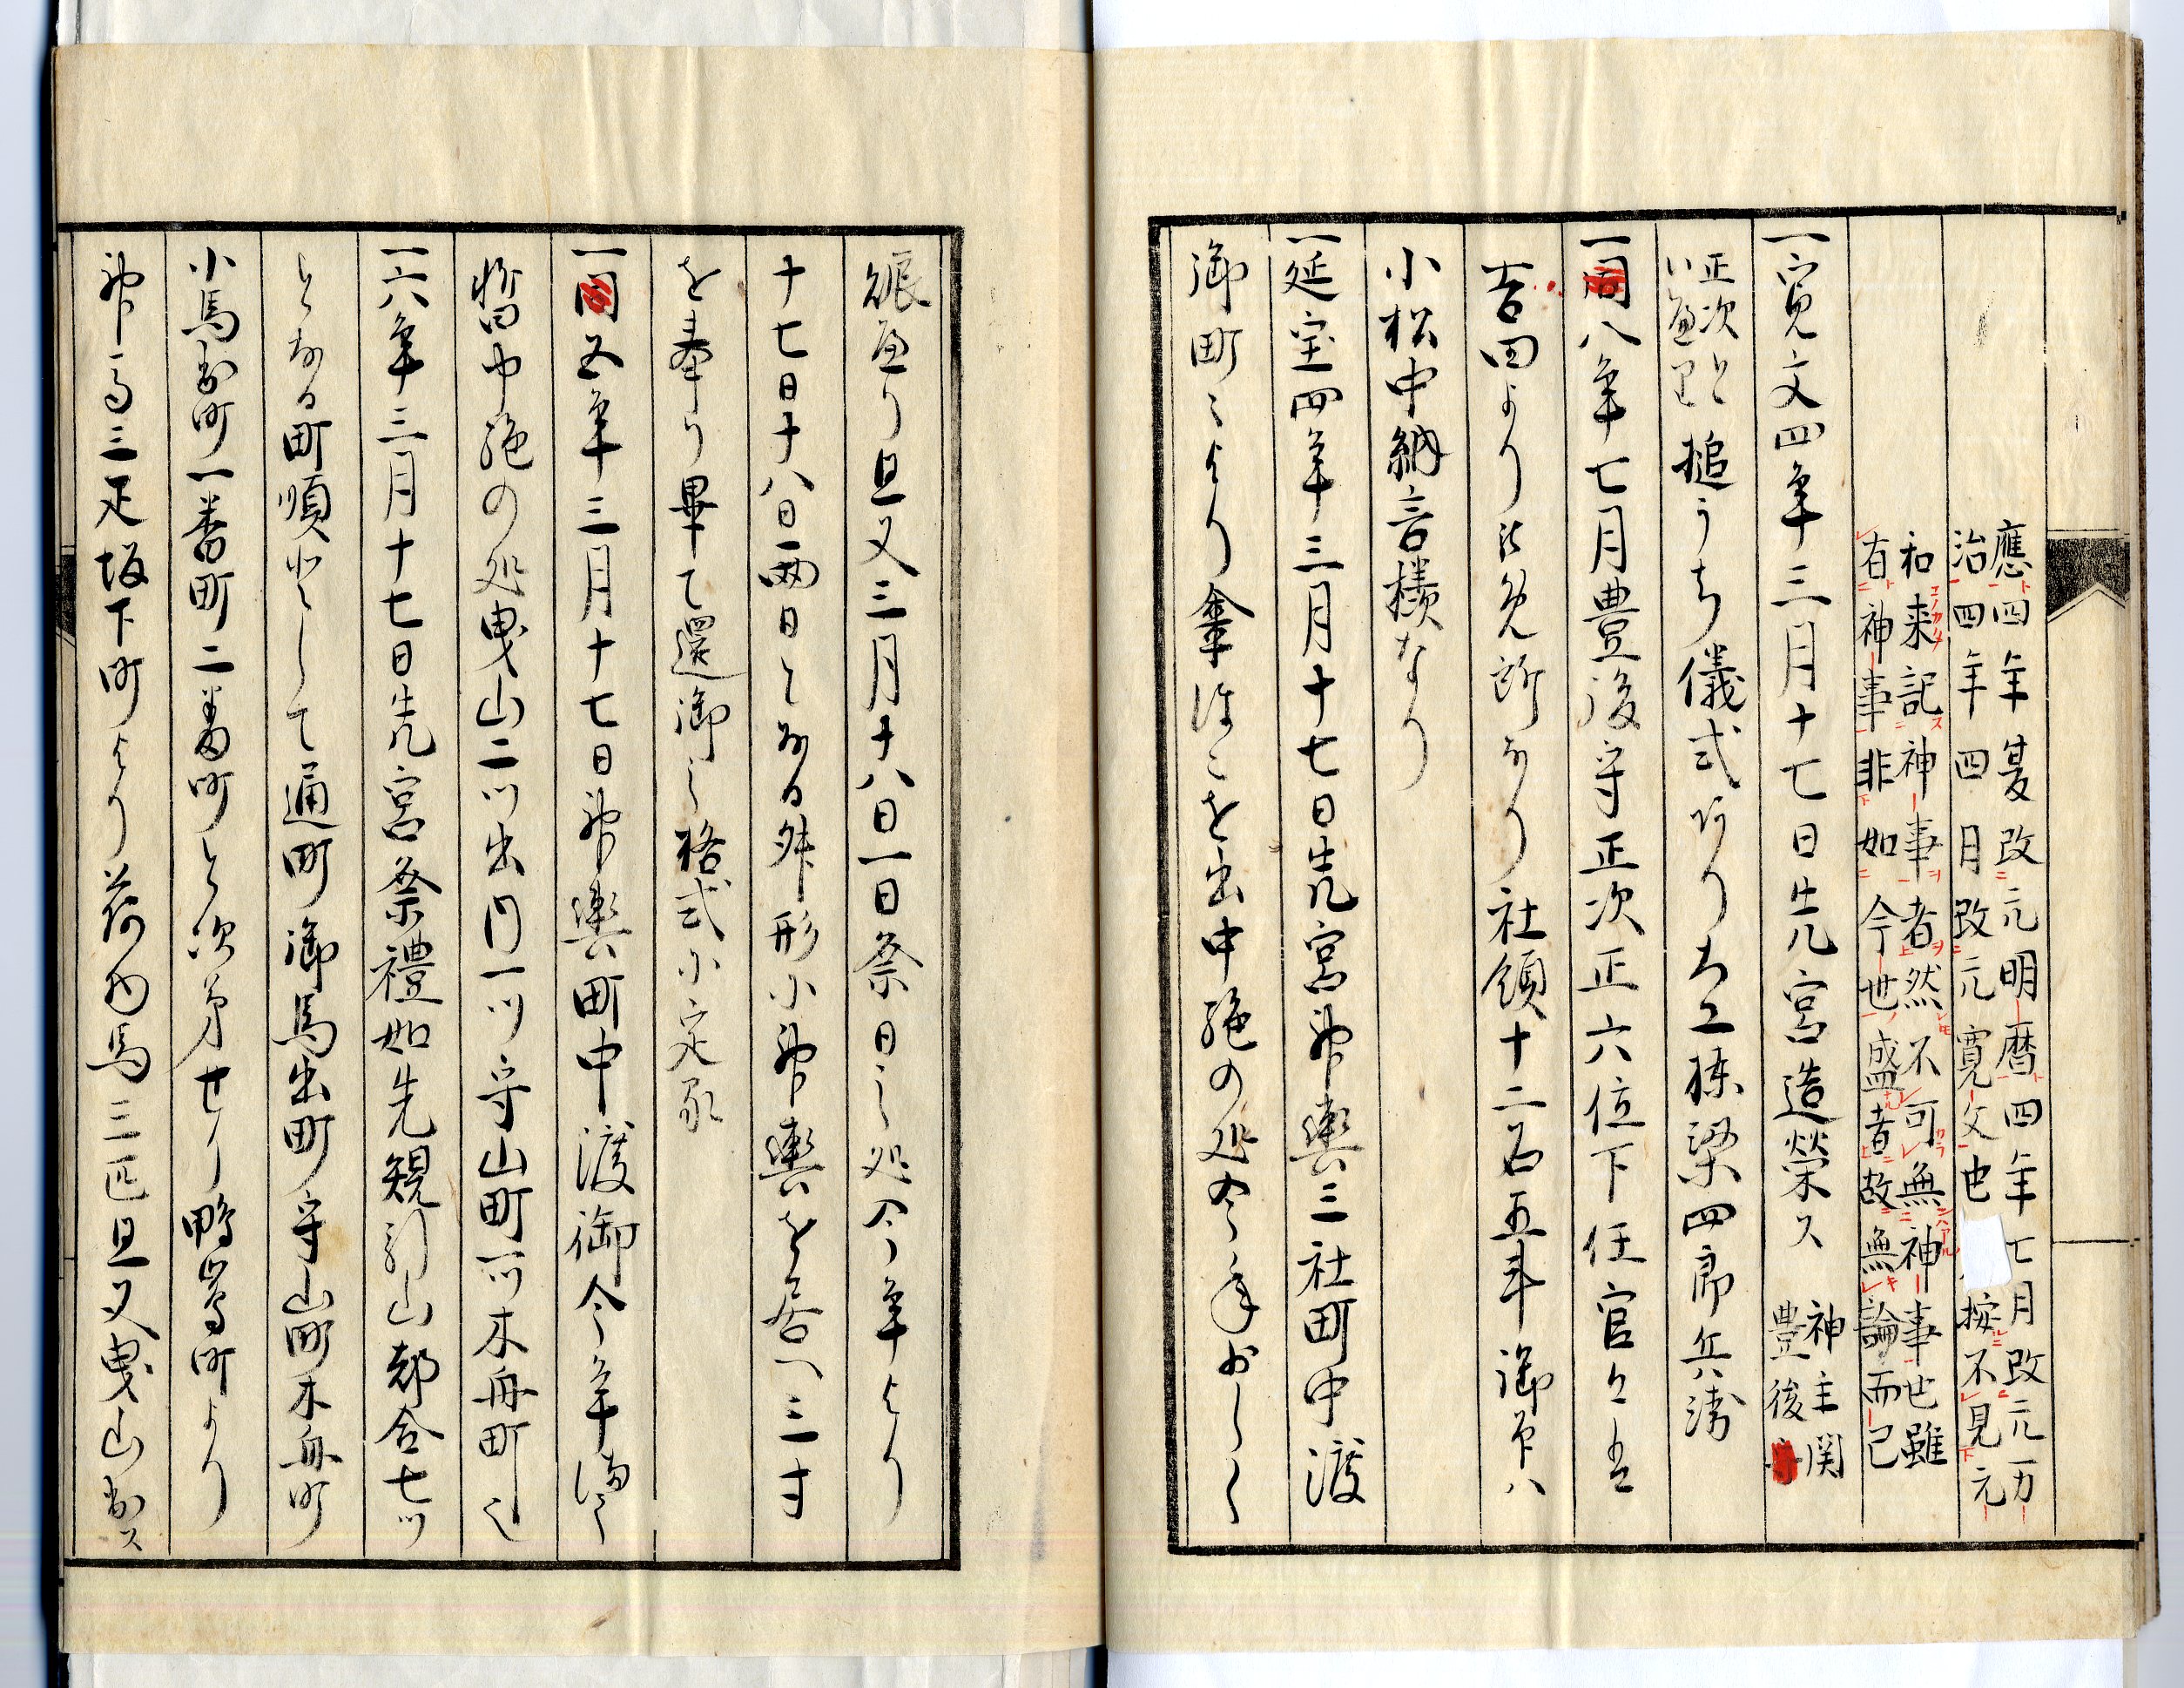 應四年夏改元明暦四年七月改元万
治四年四月改元寛文也 按不見元
和来記神事者然不可無神事也雖
有神事非如今世盛者故無論而已
一寛文四年三月十七日先宮造榮ス 神主関
豊後守
正次と
い
槌うち儀式ありち工棟梁四郎兵衛
一同八年七月豊後守正次正六位下任官
吉田より 社領十二石五斗御印ハ
小松中納言様なり
一延宝四年三月十七日先宮神輿三社町中渡
御町々より傘ほこを出中絶の処今年
賑 且又三月十八日一日祭日之処今年より
十七日十八日両日となる 舛形小神輿を居へ三寸
を奉り畢て還御之格式に定る
一同五年三月十七日神輿町中渡御今年
暫中絶の処曳山二ツ出内一ツ守山町一ツ木舟町也
一六年三月十七日先宮祭禮如先規引山都合七ツ
となる町順として通町御馬出町守山町木舟町
小馬出町一番町二番町と次第せり鴨嶋町より
神馬三疋坂下町より 馬三匹且又曳山出ス